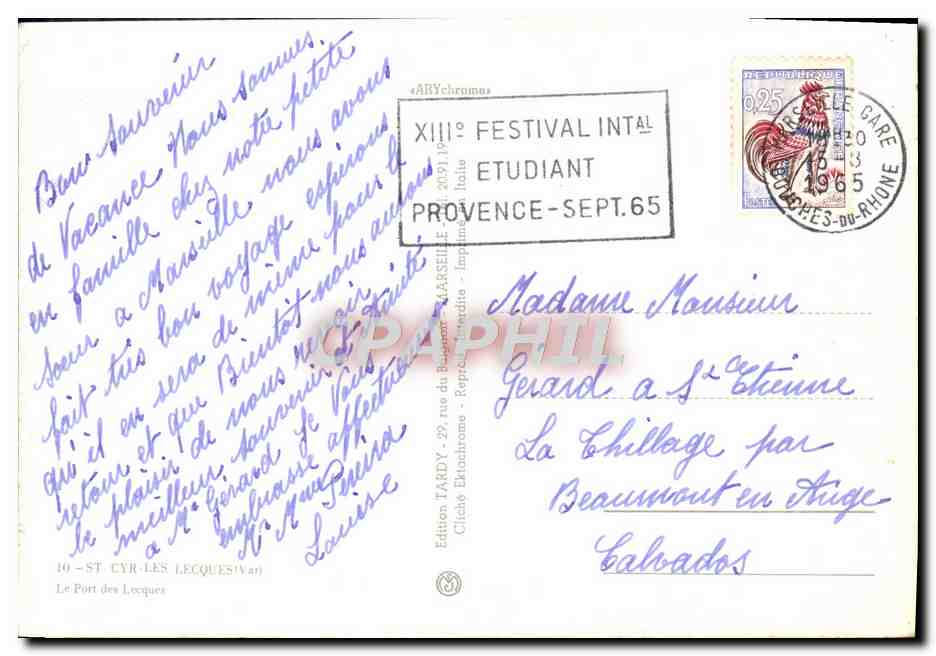 Bon souvenir
de Vacance Nous sommes.
en famille chez notre petite
sœur a Marseille nous avons
fait très bon voyage espérons
qu'il en sera de même pour le
retour et que Bientôt nous aurons
le plaisir de nous
meilleur souvenir
a Mr Gérard Je Vous
embrasse affectueus
Mr Mme
Louise
10 - ST CYR-LES LECQUES (Var)
Le Port des Lecques
«ARYchrome»
Edition TARDY - 29, rue du - MARSEILLE - 20.91.19
Cliché Ektachrome - Reprod. Interdite - Imprimé en Italie
XIIIº FESTIVAL INTAL
ETUDIANT
PROVENCE-SEPT.65
REPUBLIQUE
0,25
MARSEILLE GARE
1965
BOUCHES-DU-RHONE
Madame Monsieur
Gérard a St Etienne
La Thillage par
Beaumont en Auge
Calvados
CPAPHIL